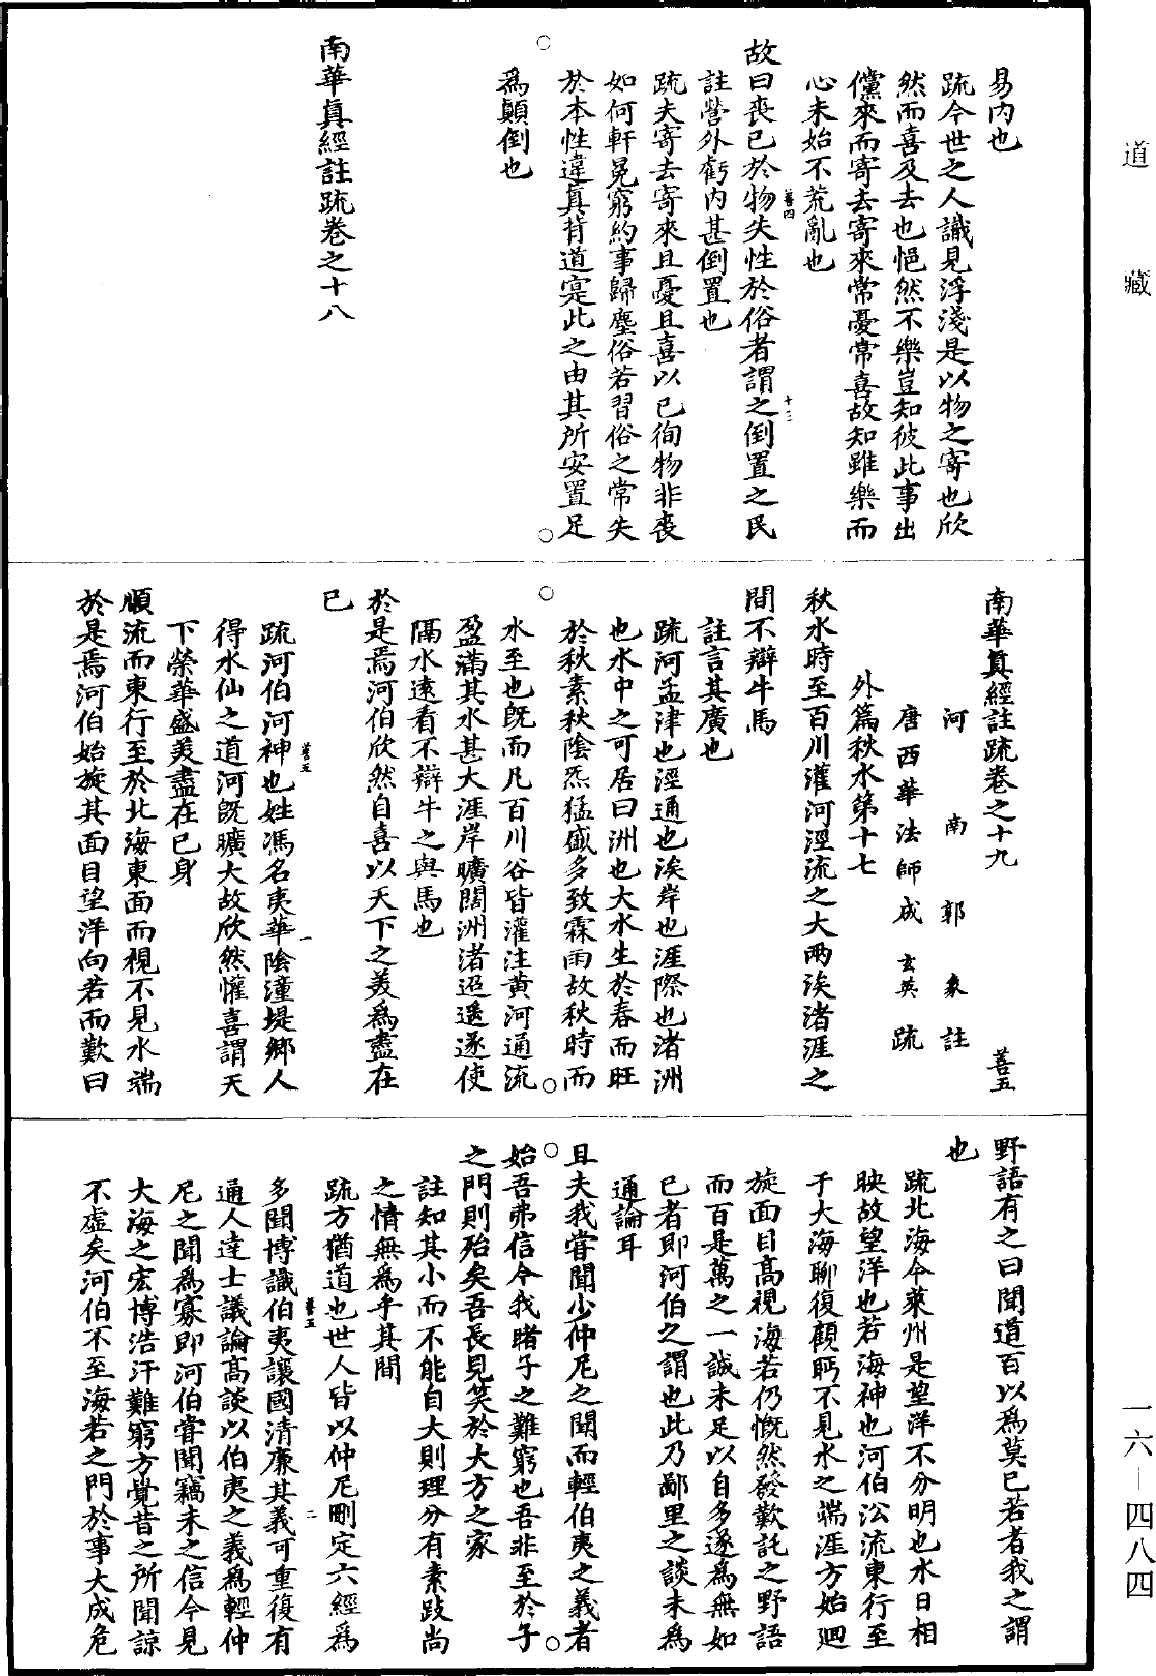 道藏
易內也
疏今世之人識見浮淺是以物之寄也欣
然而喜及去也悒然不樂豈知彼此事出
儻來而寄去寄來常憂常喜故知雖樂而
心未始不荒亂也
善四
十三
故曰喪已於物失性於俗者謂之倒置之民
註營外虧內甚倒置也
疏夫寄去寄來且憂且喜以已徇物非喪
如何軒冕窮約事歸塵俗若習俗之常失
於本性違真背道寔此之由其所安置足
為顛倒也
南華真經註疏卷之十八
南華真經註疏卷之十九
善五
河南郭象註
唐西華法師成玄英疏
外篇秋水第十七
秋水時至百川灌河涇流之大兩涘渚涯之
間不辯牛馬
註言其廣也
疏河孟津也涇通也涘岸也涯際也渚洲
也水中之可居曰洲也大水生於春而旺
於秋素秋陰炁猛盛多致霖雨故秋時而
水至也既而凡百川谷皆灌注黃河通流
盈滿其水甚大涯岸曠闊洲渚迢遙遂使
隔水遠看不辯牛之與馬也
於是焉河伯欣然自喜以天下之美為盡在
已
善五
一
疏河伯河神也姓馮名夷華陰潼堤鄉人
得水仙之道河既曠大故欣然懽喜謂天
下榮華盛美盡在已身
順流而東行至於北海東面而視不見水端
於是焉河伯始旋其面目望洋向若而歎曰
野語有之曰聞道百以為莫已若者我之謂
也
疏北海今萊州是望洋不分明也水日相
映故望洋也若海神也河伯沿流東行至
于大海聊復顧眄不見水之端涯方始迴
旋面目高視海若仍慨然發歎託之野語
而百是萬之一誠未足以自多遂為無如
已者即河伯之謂也此乃鄙里之談未為
通論耳
且夫我嘗聞少仲尼之聞而輕伯夷之義者
始吾弗信今我睹子之難窮也吾非至於子
之門則殆矣吾長見笑於大方之家
註知其小而不能自大則理分有素跂尚
之情無為乎其間
疏方猶道也世人皆以仲尼刪定六經為
善五
二
多聞博識伯夷讓國清廉其義可重復有
通人達士議論高談以伯夷之義為輕仲
尼之聞為寡即河伯嘗聞竊未之信今見
大海之宏博浩汗難窮方覺昔之所聞諒
不虛矣河伯不至海若之門於事大成危
一六—四八四